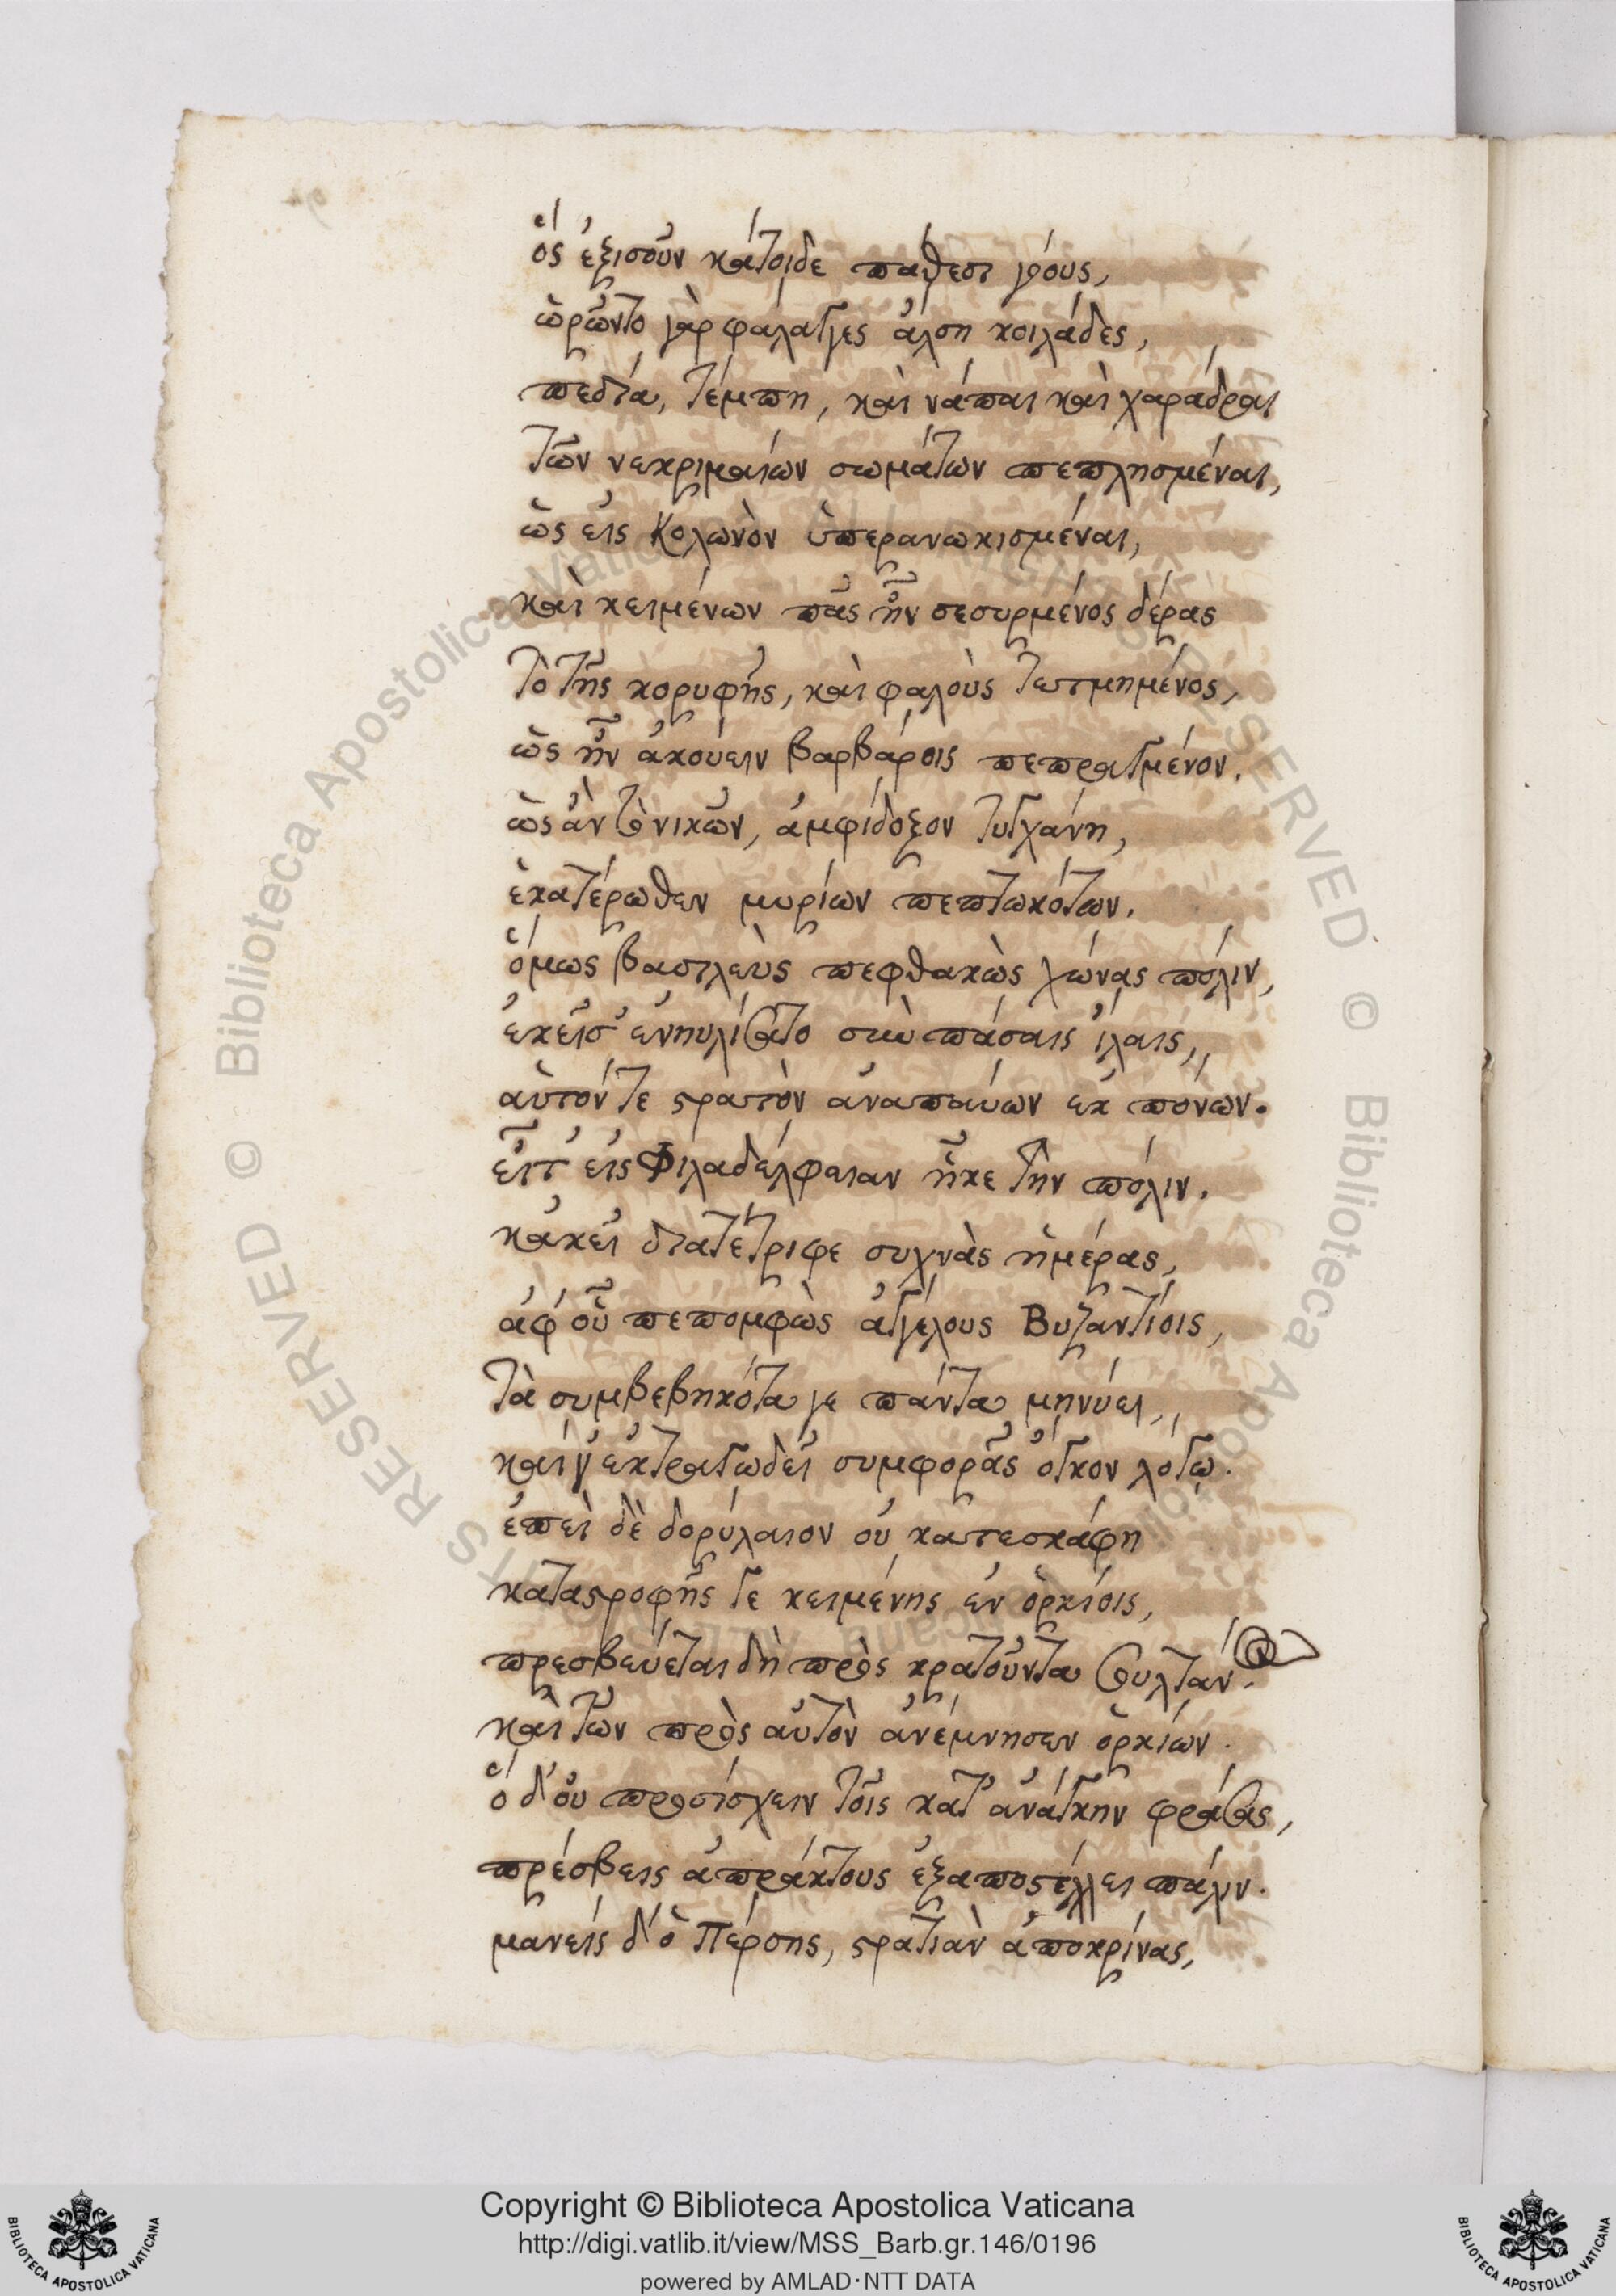 ὃς ἐξισοῦν κάτοιδε πάθεσι γόους,
ὡρῶντο γὰρ φάλαγγες ἄλση κοιλάδες,
πεδία, τέμπη, καὶ νάπαι καὶ χαράδραι
τῶν νεκριμαίων σωμάτων πεπλησμέναι,
ὡς εἰς κολωνὸν ὑπερανωκισμέναι,
καὶ κειμένων πᾶς ἦν σεσυρμένος δέρας
τὸ τῆς κορυφῆς, καὶ φαλοὺς τετμημένος,
ὡς ἦν ἀκούειν βαρβάροις πεπραγμένον.
ὡς ἂν τὸ νικῶν, ἀμφίδοξον τυγχάνῃ,
ἑκατέρωθεν μυρίων πεπτωκότων.
ὅμως βασιλεὺς πεφθακὼς χώνας πόλιν,
ἐκεῖσ' ἐνηυλίσατο σὺν πάσαις ἴλαις,
αὐτόν τε στρατὸν ἀναπαύων ἐκ πόνων.
εἶτ' εἰς Φιλαδέλφειαν ἧκε τὴν πόλιν.
κἀκεῖ διατέτριφε συχνὰς ἡμέρας,
ἀφ' οὗ πεπομφὼς ἀγγέλους Βυζαντίοις,
τὰ συμβεβηκότα γε πάντα μηνύει,
καί γ' ἐκτραγωδεῖ συμφορᾶς ὄγκον λόγῳ.
ἐπεὶ δὲ δορύλαιον οὐ κατεσκάφη
καταστροφῆς γε κειμένης ἐν ὁρκίοις,
πρεσβεύεται δὴ πρὸς κρατοῦντα σουλτάν.
καὶ τῶν πρὸς αὐτὸν ἀνέμνησεν ὁρκίων.
ὁ δ' οὐ προσίσχειν τοῖς κατ' ἀνάγκην φράσας,
πρέσβεις ἀπράκτους ἐξαποστέλλει πάλιν.
μανεὶς δ' ὁ Πέρσης, στρατιὰν ἀποκρίνας,
Copyright © Biblioteca Apostolica Vaticana
http://digi.vatlib.it/view/MSS_Barb.gr.146/0196
powered by AMLAD·NTT DATA